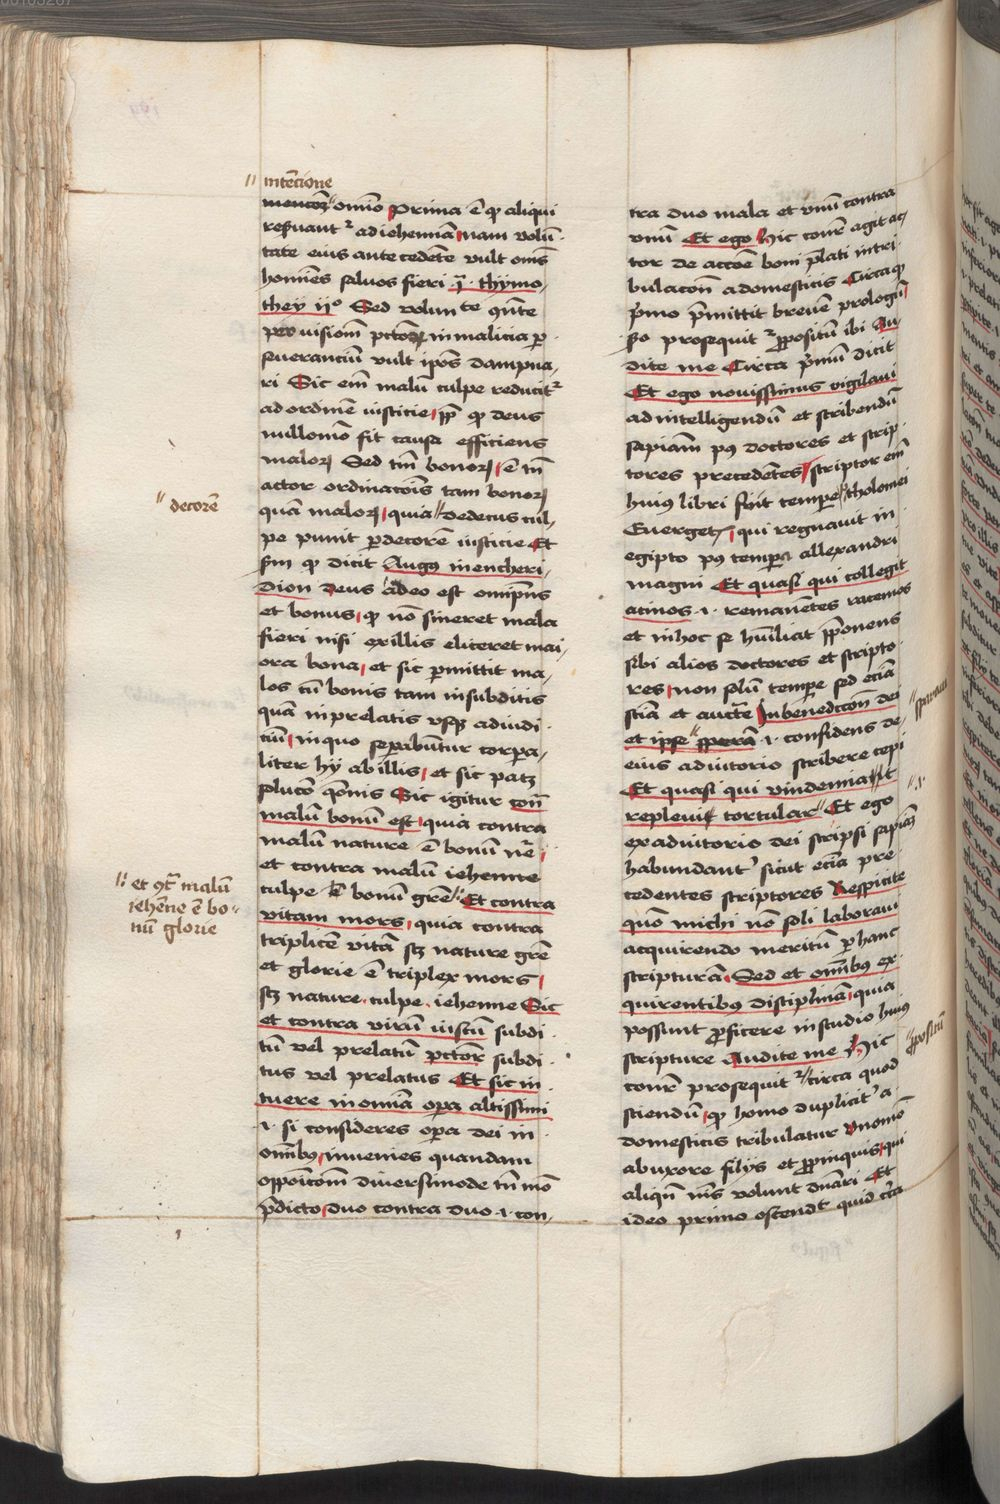 intēcione
mentōꝝ omīo Prima ē qꝫ aliqui
reſuant᷒ ad iehennā nam volū
tate eius antecedēte vult om̄s
homīes saluos fieri .j. thymo
they ijº Sed volunte ꝯn̄te
per visionē pctōꝝ in malicia ꝑ
seuerancium vult ip̄os dampna
ri Sic em̄ malū culpe reducit᷒
ad ordinē iusticie ꝓp̄ qꝫ deus
nullomō fit causa efficiens
maloꝝ Sed tm̄ bonoꝝ ē tn̄
actor ordinatōis tam bonoꝝ
quā maloꝝ quia dedecus cul
decorē
pe punit ꝑ decorē iusticie Et
ẜm qꝫ dicit Augꝰ in encheri
dion deus adeo est om̄ipn̄s
et bonus qꝫ nō sineret mala
fieri nisi ex illis eliceret mai
ora bona et sic ꝑmittit ma
los cū bonis tam in subditis
quā in prelatis vsqꝫ ad iudi
ciū in quo seꝑabūtur corꝑa
liter hij ab illis et sic patꝫ
solucō q̄onis Sic igitur con̄
malū bonū est quia contra
malū nature ē bonū nr̄e
et contra malū iehenne
culpe ē bonū gr̄e Et contra
et ꝯt̄ malū
iehēne ē bo
nū glorie
vitam mors quia contra
triplicē vitā sꝫ nature gr̄e
et glorie ē triplex mors
sꝫ nature culpe iehenne Sic
et contra virū iustū subdi
tū vel prelatū pctōr subdi
tus vel prelatus Et sic in
tuere in omīa oꝑa altissimi
.i. si consideres oꝑa dei in
omībꝰ inuenies quandam
oppoītionē diuersimode tn̄ mō
p̄dicto duo contra duo .i. con
tra duo mala et vnū contra
vnū Et ego Hic cōnr̄ agit ac
tor de acc̄oe boni p̄lati in tri
bulacōn̄ a domesticis Circa qꝫ
p̄mo p̄mittit breuē prologū
ẜo prosequit᷒ ꝓpositū ibi Au
dite me Circa p̄mū dicit
Et ego nouissimus vigilaui
ad intelligendū et scribendū
sapiām pꝰ doctores et scrip
tores precedētes scriptor em̄
huiꝰ libri fuit tempe tholomei
Euergetꝭ qui regnauit in
egipto pꝰ tempa allexandri
magni Et quasi qui collegit
acinos .i. remanētes racemos
et in hoc se hūiliat ꝓponens
sibi alios doctores et scripto
res non solū tempe sed eciā
sciā et auct̄e In bēnediccōn̄ dei
sperauii
et ipse sperā .i. confidens de
eius adiutorio scribere cepi
Et quasi qui vindemiat
repleui tortular Et ego
ex adiutorio dei scripsi sapiāꝫ
habundant᷒ sicut eciā pre
cedentes scriptores Respicite
quō michi nō soli laboraui
acquirendo meritū ꝑ hanc
scripturā Sed et omībꝰ ex
quirentibꝰ discipl̄inā quia
possunt ꝓficere in studio huiꝰ
scripture Audite me Hic
ꝓpositū
cōnr̄ prosequit᷒ circa quod
sciendū qꝫ homo duplicit᷒ a
domesticis tribulatur Vnomō
ab vxore filijs et ꝓpinquis qui
aliqn̄ nīs volunt dn̄ari Et
ideo primo ostendt quid cīca